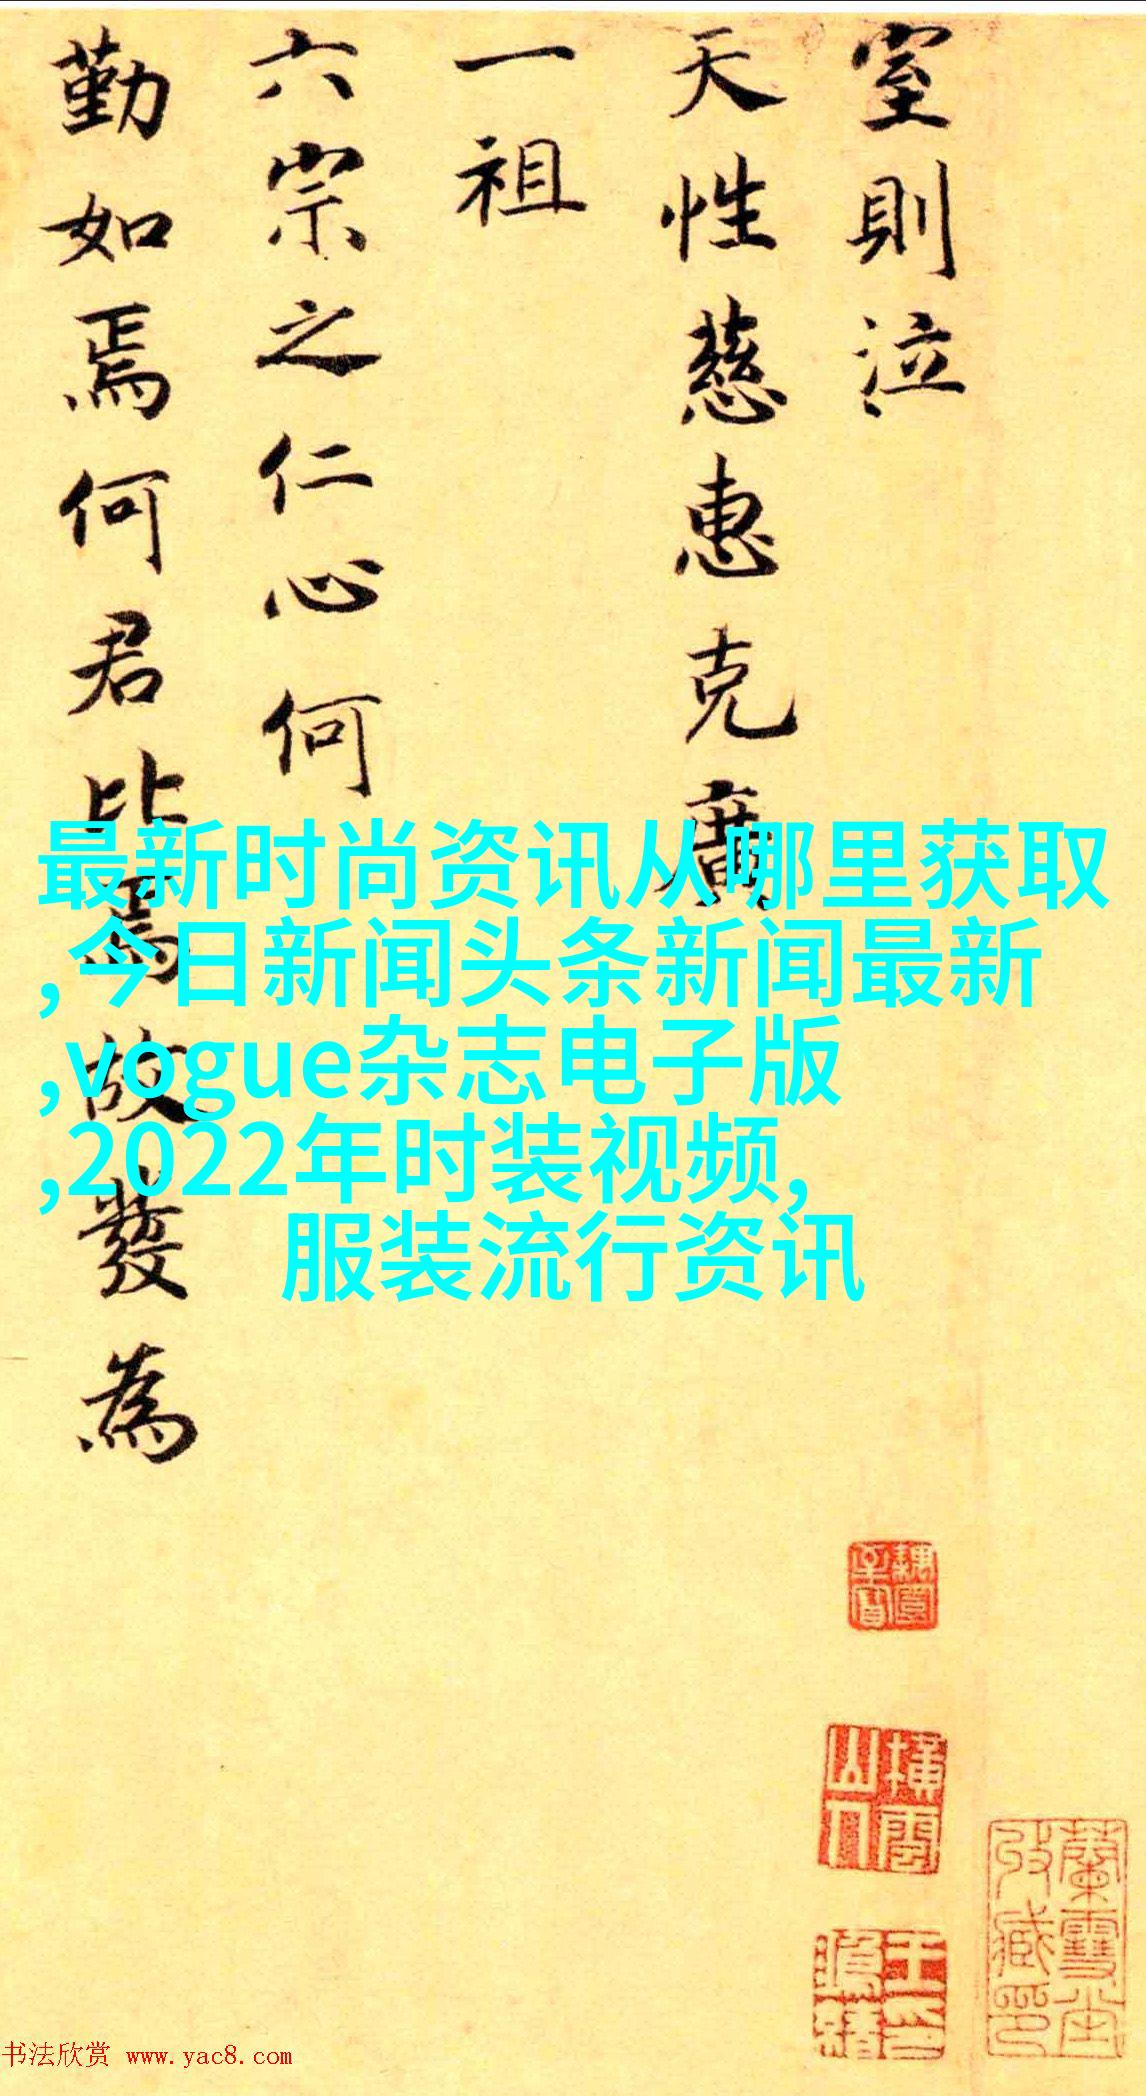 室則泣
天性慈惠克廣
一祖
六宗之仁心何
勤如焉何君比焉故發為
最新时尚资讯从哪里获取
,今日新闻头条新闻最新
,vogue杂志电子版
,2022年时装视频,
服装流行资讯
横雲山人
蘭雪堂收藏印
书法欣赏 www.yac8.com